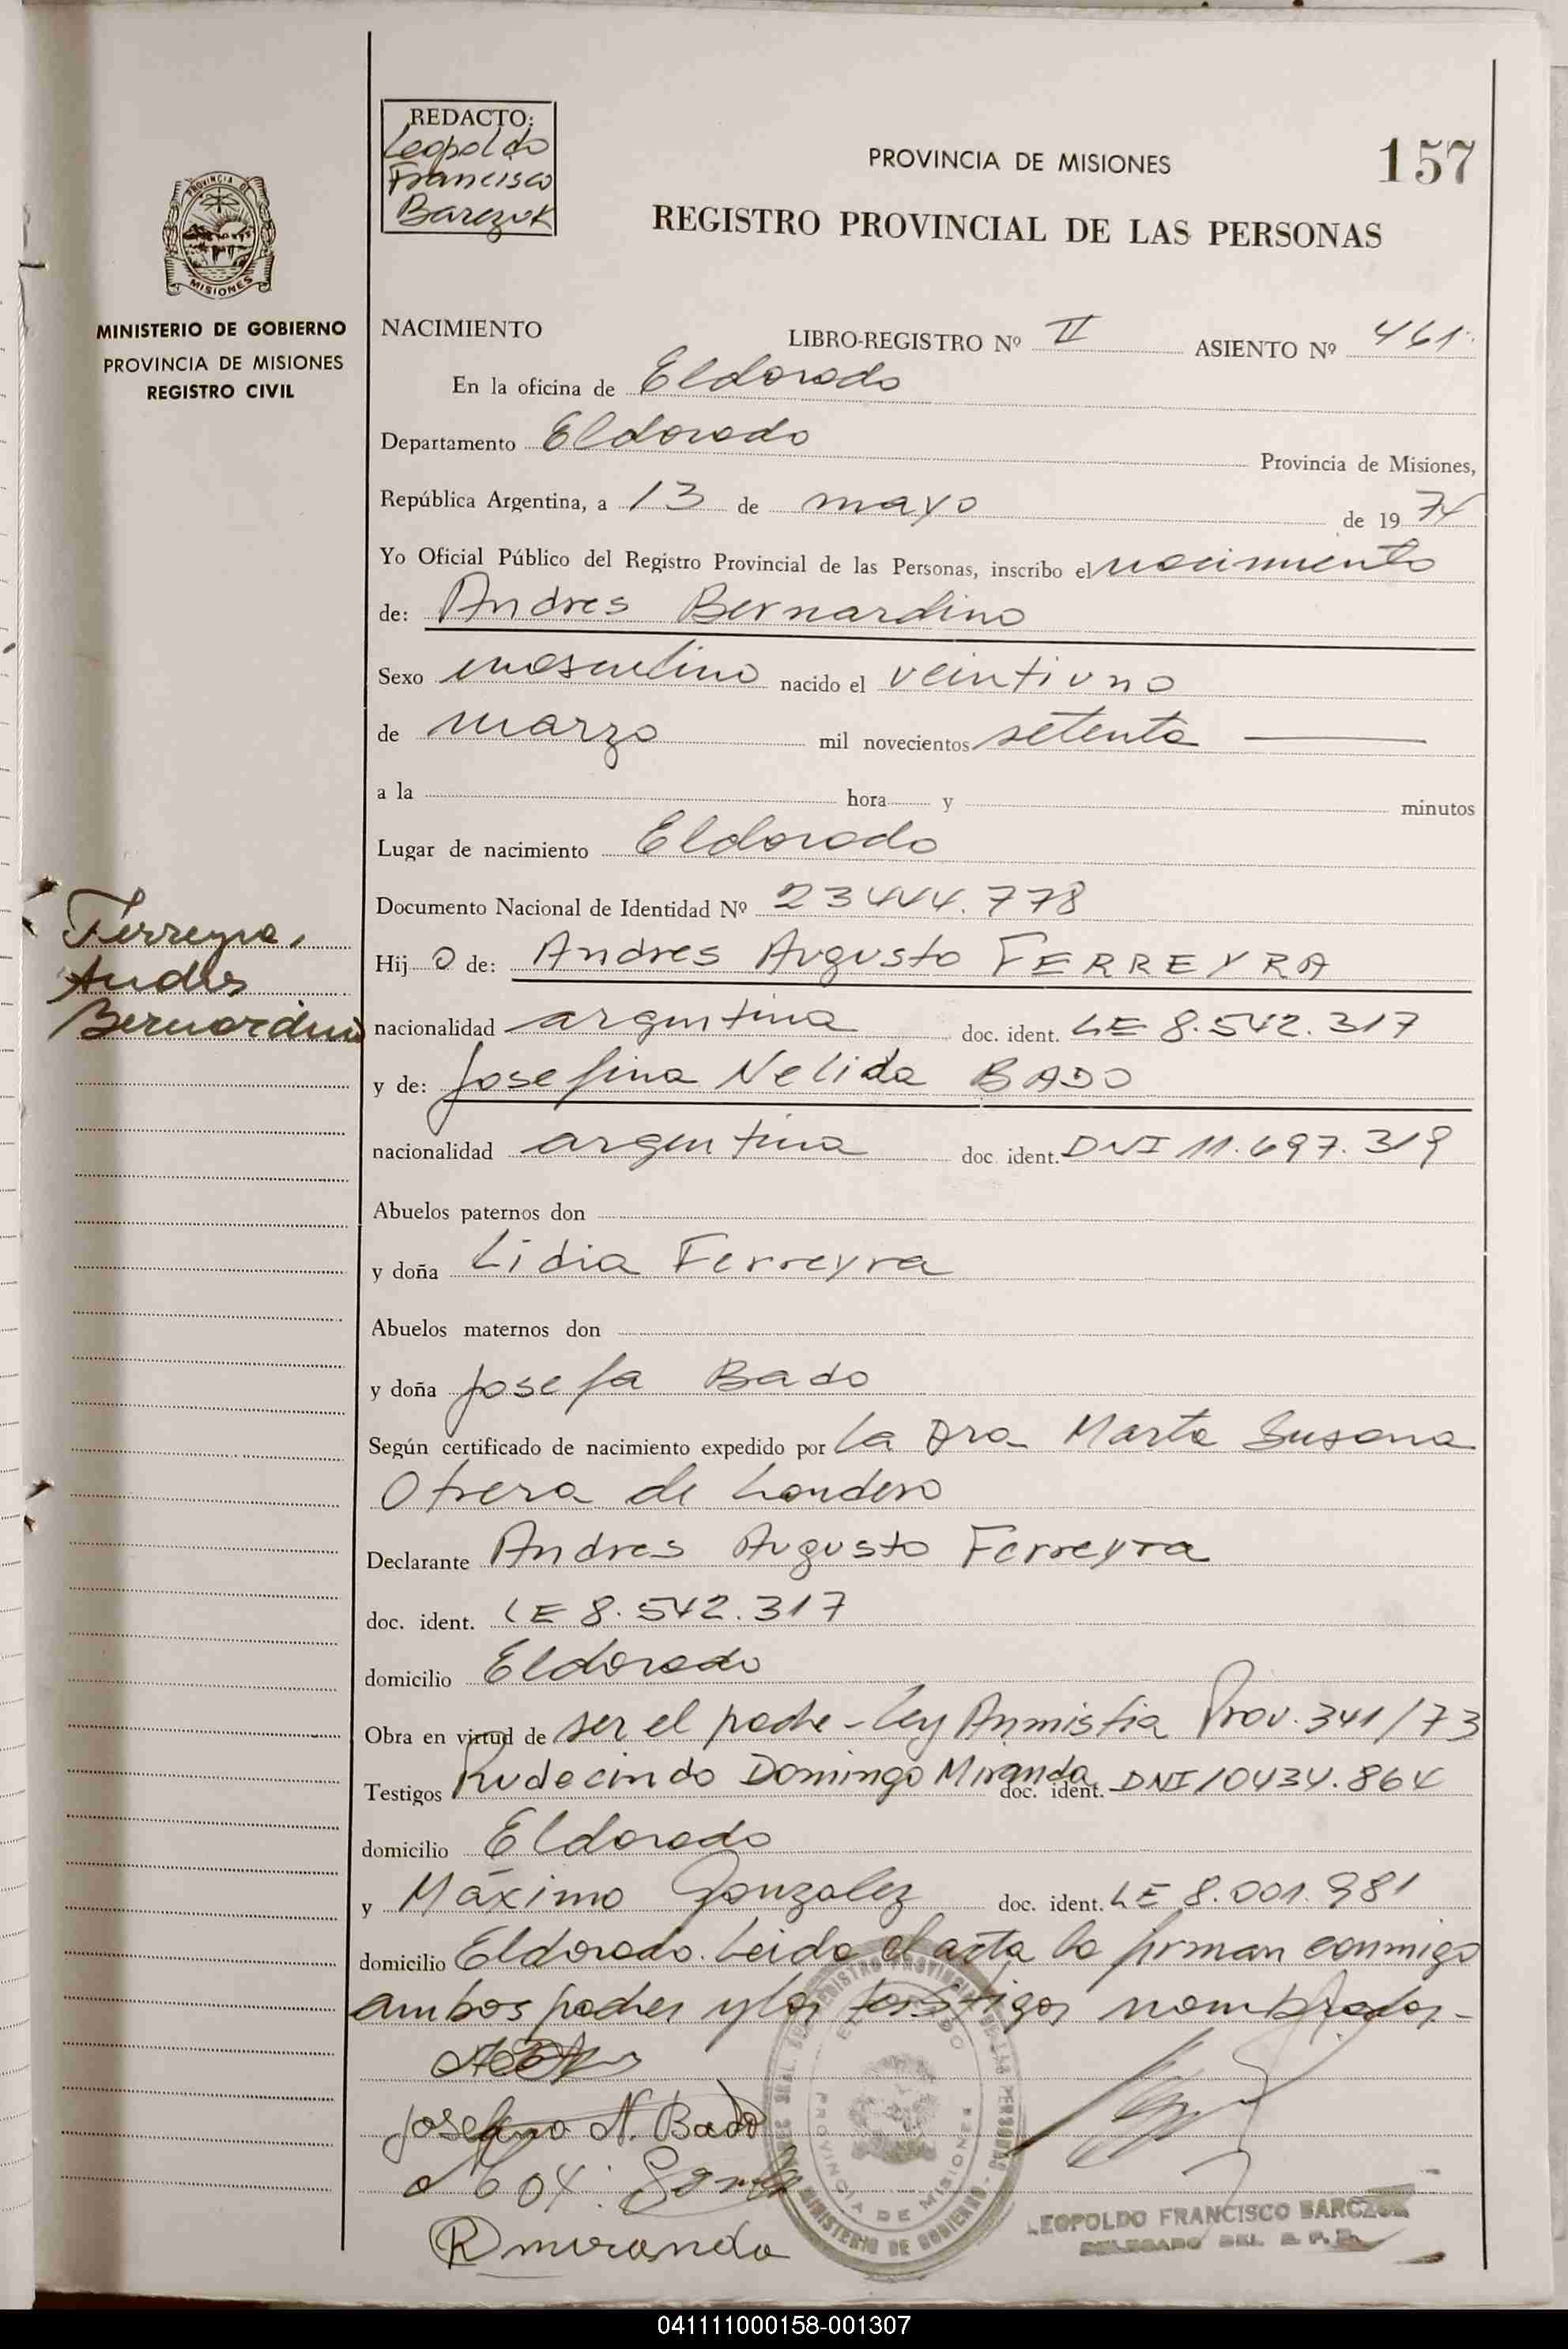 REDACTO:
Leopoldo
Francisco
Barczuk
PROVINCIA DE MISIONES
157
REGISTRO PROVINCIAL DE LAS PERSONAS
PROVINCIA DE
MISIONES
MINISTERIO DE GOBIERNO
PROVINCIA DE MISIONES
REGISTRO CIVIL
NACIMIENTO LIBRO-REGISTRO Nº II ASIENTO Nº 461
En la oficina de Eldorado
Departamento Eldorado Provincia de Misiones,
República Argentina, a 13 de mayo de 1974
Yo Oficial Público del Registro Provincial de las Personas, inscribo el nacimiento
de: Andres Bernardino
Sexo masculino nacido el veintiuno
de marzo mil novecientos setenta
a la hora y minutos
Lugar de nacimiento Eldorado
Documento Nacional de Identidad Nº 23444.778
Ferreyra,
Andres
Bernardino
Hij o de: Andres Augusto FERREYRA
nacionalidad argentina doc. ident. LE 8.542.317
y de: Josefina Nelida BADO
nacionalidad argentina doc ident. DNI 11.697.319
Abuelos paternos don
y doña Lidia Ferreyra
Abuelos maternos don
y doña Josefa Bado
Según certificado de nacimiento expedido por la Dra Marta Susana
Otrera de Londero
Declarante Andres Augusto Ferreyra
doc. ident. LE 8.542.317
domicilio Eldorado
Obra en virtud de ser el padre - ley Anmistia Prov. 341/73
Testigos Rudecindo Domingo Miranda doc. ident. DNI 10434.864
domicilio Eldorado
y Máximo Gonzalez doc. ident. LE 8.001.981
domicilio Eldorado. Leida el acta la firman conmigo
ambos padres y los testigos nombrados-
Josefina N. Bado
R miranda
REGISTRO PROVINCIAL DE LAS PERSONAS
MINISTERIO DE GOBIERNO
ELDORADO
PROVINCIA DE MISIONES
LEOPOLDO FRANCISCO BARCZUK
DELEGADO DEL R. P. P.
041111000158-001307